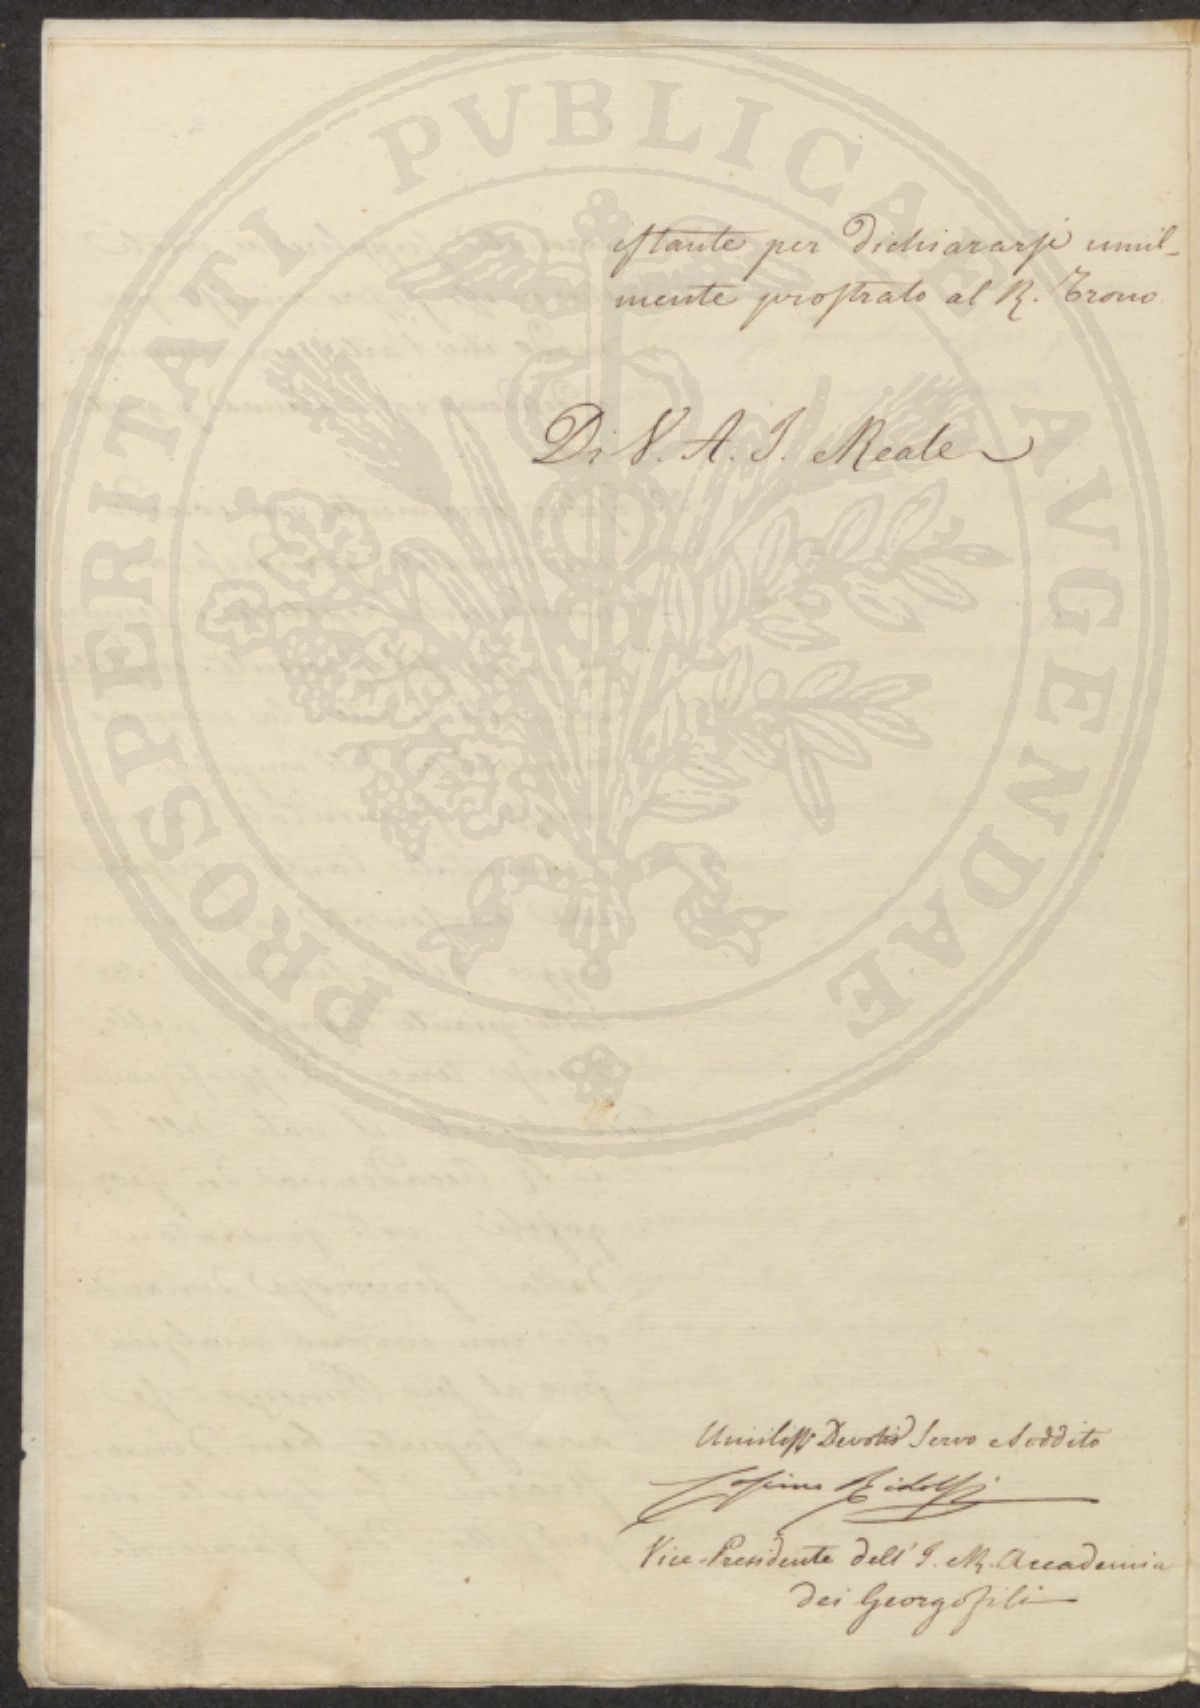 PROSPERITATI PUBLICAE AVGENDAE
istante per dichiararsi umil-
mente prostrato al R. Trono
Di V. A. I. e Reale
Umiliss Devotis Servo e Soddito
Cosimo Ridolfi
Vice-Presidente dell' I. e R. Accademia
dei Georgofili